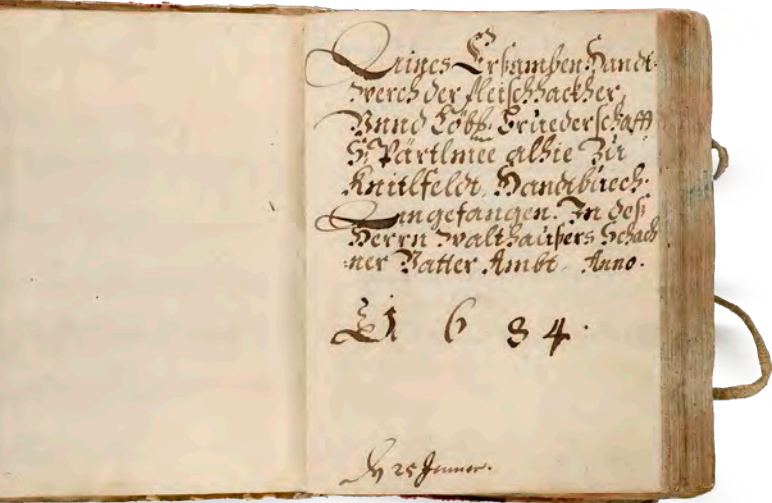 Eines Ersamben Handt-
werch der fleischhackher,
Vnnd Löbl: Brüederschafft
S: Pärtlmee alhie Zu
Knitlfeldt, Handtbuech.
Angefangen. In deß
Herrn Walthaüßers Schach
:ner Vatter Ambt. Anno.
1 6 8 4.
25 Jenner.